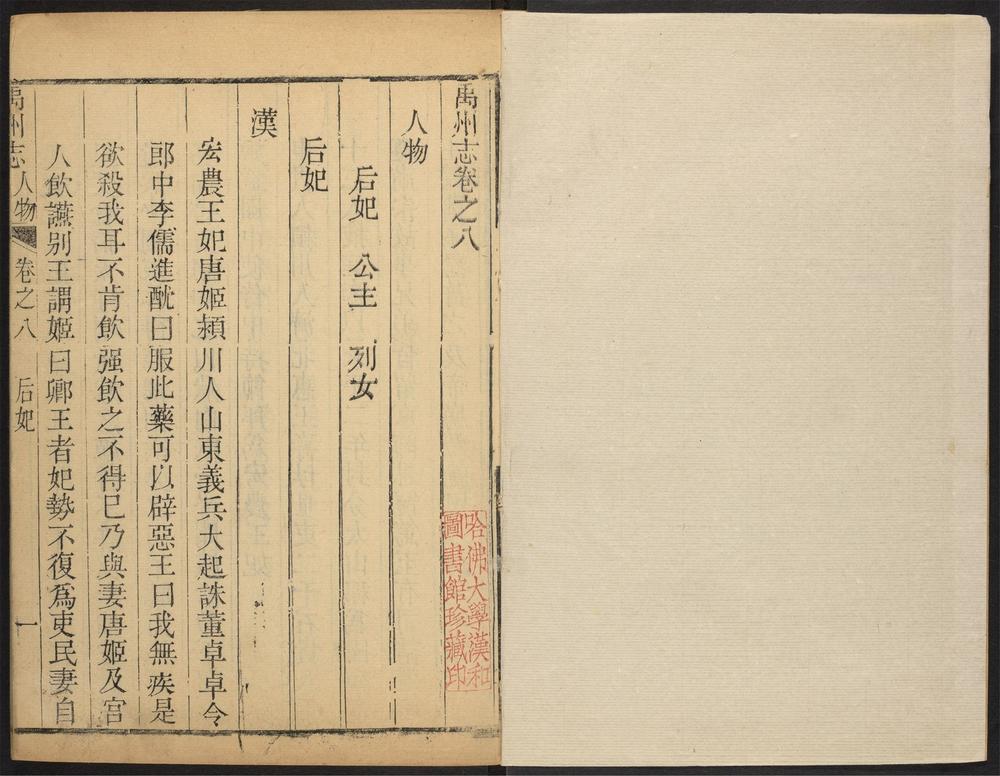 禹州志卷之八
人物
后妃 公主 列女
后妃
漢
宏農王妃唐姬潁川人山東義兵大起誅董卓卓令
郎中李儒進酖曰服此藥可以辟惡王曰我無疾是
欲殺我耳不肯飲强飲之不得已乃與妻唐姬及宮
人飲讌别王謂姬曰卿王者妃勢不復爲吏民妻自
禹州志 人物 卷之八 后妃 一
哈佛大學漢和
圖書館珍藏印